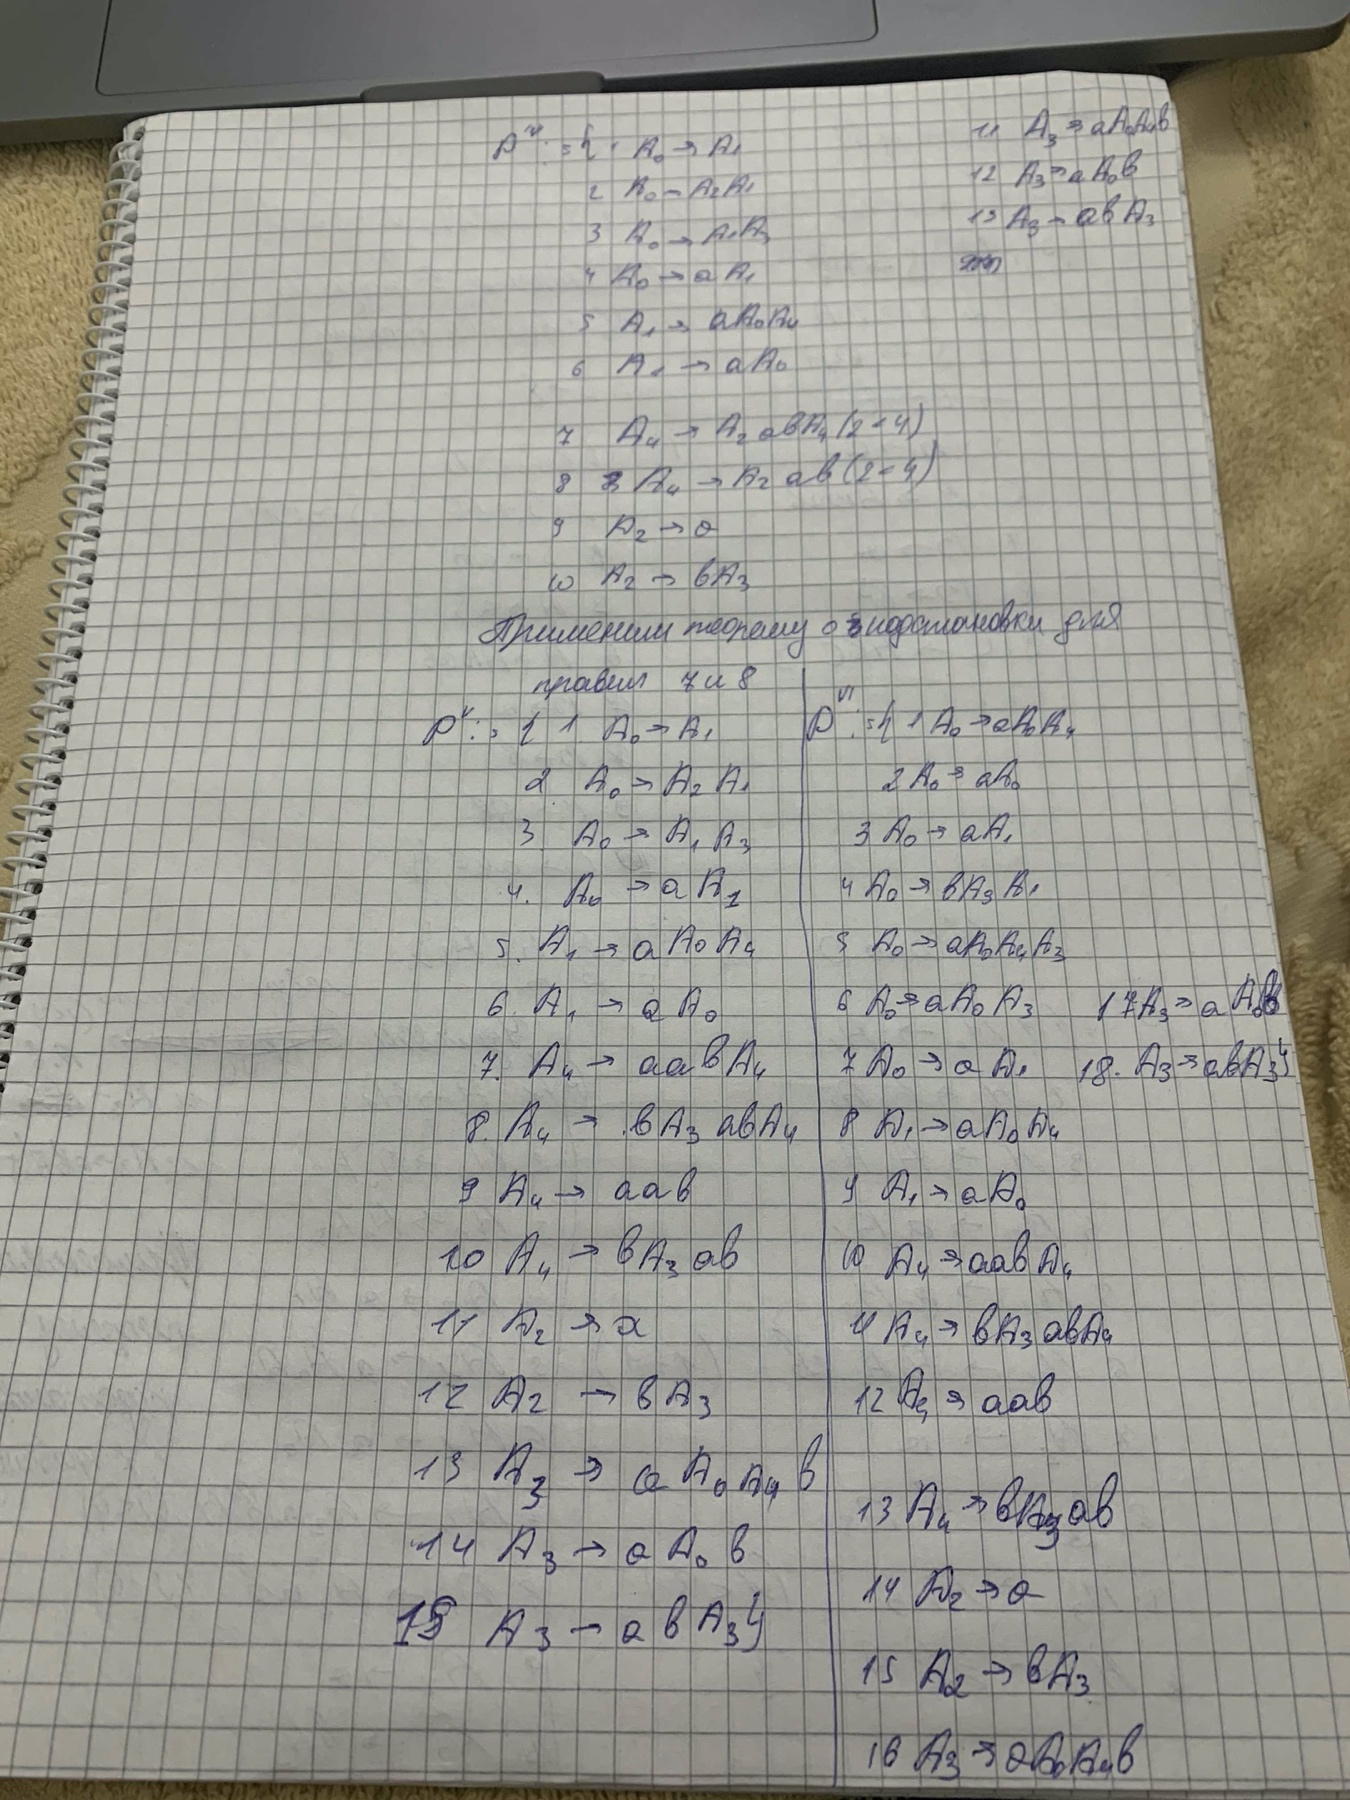 P^IV := { 1 A₀ → A₁
2 A₀ → A₂A₁
3 A₀ → A₁A₃
4 A₀ → aA₁
5 A₁ → aA₀A₄
6 A₁ → aA₀
7 A₄ → A₂ авA₄ (2<4)
8 A₄ → A₂ ав (2<4)
9 A₂ → a
10 A₂ → вA₃
11 A₃ → aA₀A₄в
12 A₃ → aA₀в
13 A₃ → aвA₃
Применили теорему о подстановки для
правил 7 и 8
P^V := { 1 A₀ → A₁
2 A₀ → A₂ A₁
3 A₀ → A₁ A₃
4. A₀ → a A₁
5. A₁ → a A₀ A₄
6. A₁ → a A₀
7. A₄ → aaвA₄
8. A₄ → вA₃ aвA₄
9 A₄ → aaв
10 A₄ → вA₃ aв
11 A₂ → a
12 A₂ → вA₃
13 A₃ → a A₀ A₄ в
14 A₃ → a A₀ в
15 A₃ → a в A₃}
P^VI := { 1 A₀ → aA₀A₄
2 A₀ → aA₀
3 A₀ → aA₁
4 A₀ → вA₃ A₁
5 A₀ → aA₀A₄A₃
6 A₀ → aA₀ A₃
7 A₀ → a A₁
8 A₁ → aA₀ A₄
9 A₁ → aA₀
10 A₄ → aaвA₄
11 A₄ → вA₃ aвA₄
12 A₄ → aaв
13 A₄ → вA₃ aв
14 A₂ → a
15 A₂ → вA₃
16 A₃ → aA₀A₄в
17 A₃ → a A₀в
18. A₃ → aвA₃}